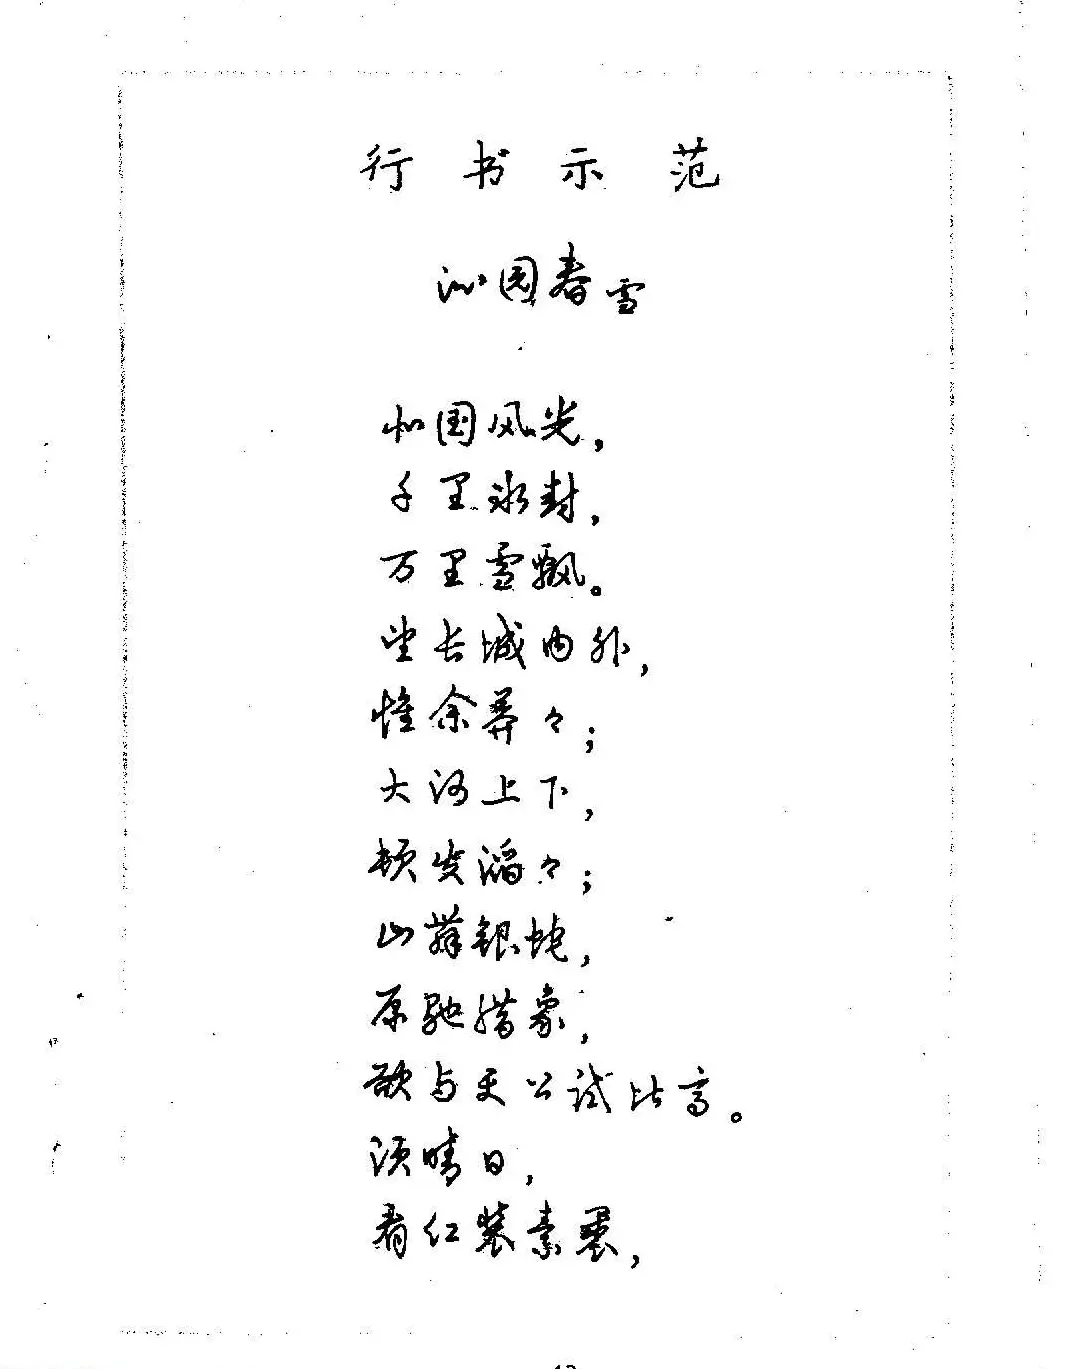 行书示范
沁园春雪
北国风光，
千里冰封，
万里雪飘。
望长城内外，
惟余莽々；
大河上下，
顿失滔々；
山舞银蛇，
原驰蜡象，
欲与天公试比高。
须晴日，
看红装素裹，